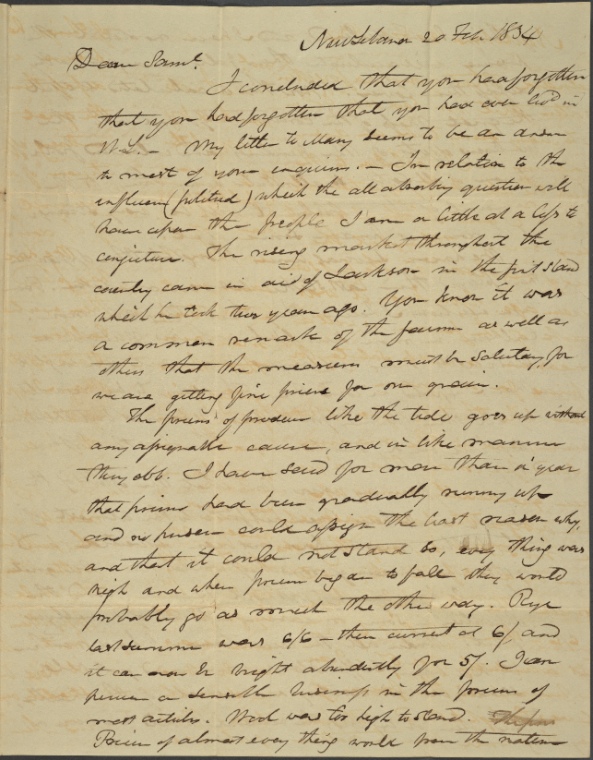 New Lebanon 20 Feb 1834
Dear Saml.
I concluded that you had forgotten
that you had forgotten that you had ever liv'd in
N.L. – My letter to Mary seems to be an answer
to most of your enquiries. – In relation to the
influence (political) which the all absorbing question will
have upon the people I am a little at a loss to
conjecture. The rising market throughout the
country came in aid of Jackson in the first stand
which he took two years ago. You know it was
a common remark of the farmers as well as
others that the measures must be salutary, for
we are getting fine prices for our grain.
The prices of produce like the tide goes up without
any assignable cause, and in like manner
they ebb. I have said for more than a year
that prices had been gradually running up
and no person could assign the least reason why,
and that it could not stand so, every thing was
high and when prices began to fall they would
probably go as much the other way. Rye
last summer was 6/6 – then current at 6/ and
it can now be bought abundantly for 5/. I can
perceive a sensible in the prices of
most articles. Wool was too high to stand.
Prices of almost every thing would from the nature